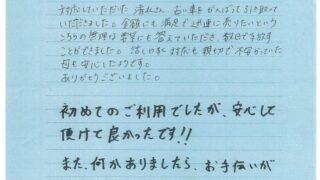 対応していただいた清水さん、古い車をがんばって引き取って
いただきました。金額にも満足で迅速に売りたいという
こちらの無理な希望にも答えていただき、数日で手放す
ことができました。話し方も対応も親切で不安がっていた
母も安心したようです。
ありがとうございました。
初めてのご利用でしたが、安心して
頂けて良かったです!!
また、何かありましたら、お手伝いが